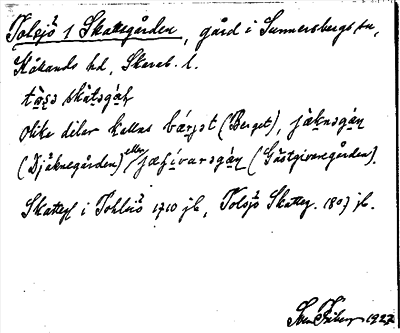 Tolsjö 1 Skattegården, gård i Sunnersbergs sn,
Kållands hd, Skarab. l.
tåsə skàtəgàɳ
Olika delar kallas bǽrjət (Berget), jæ̀knəgàɳ
(Djäknegården) eller jæ̀ʃívarəgàɳ (Gästgivaregården).
Skatteg. i Tohlsiö 1710 jb, Tolsjö Skatteg. 1807 jb.
Sven Fåberg 1927